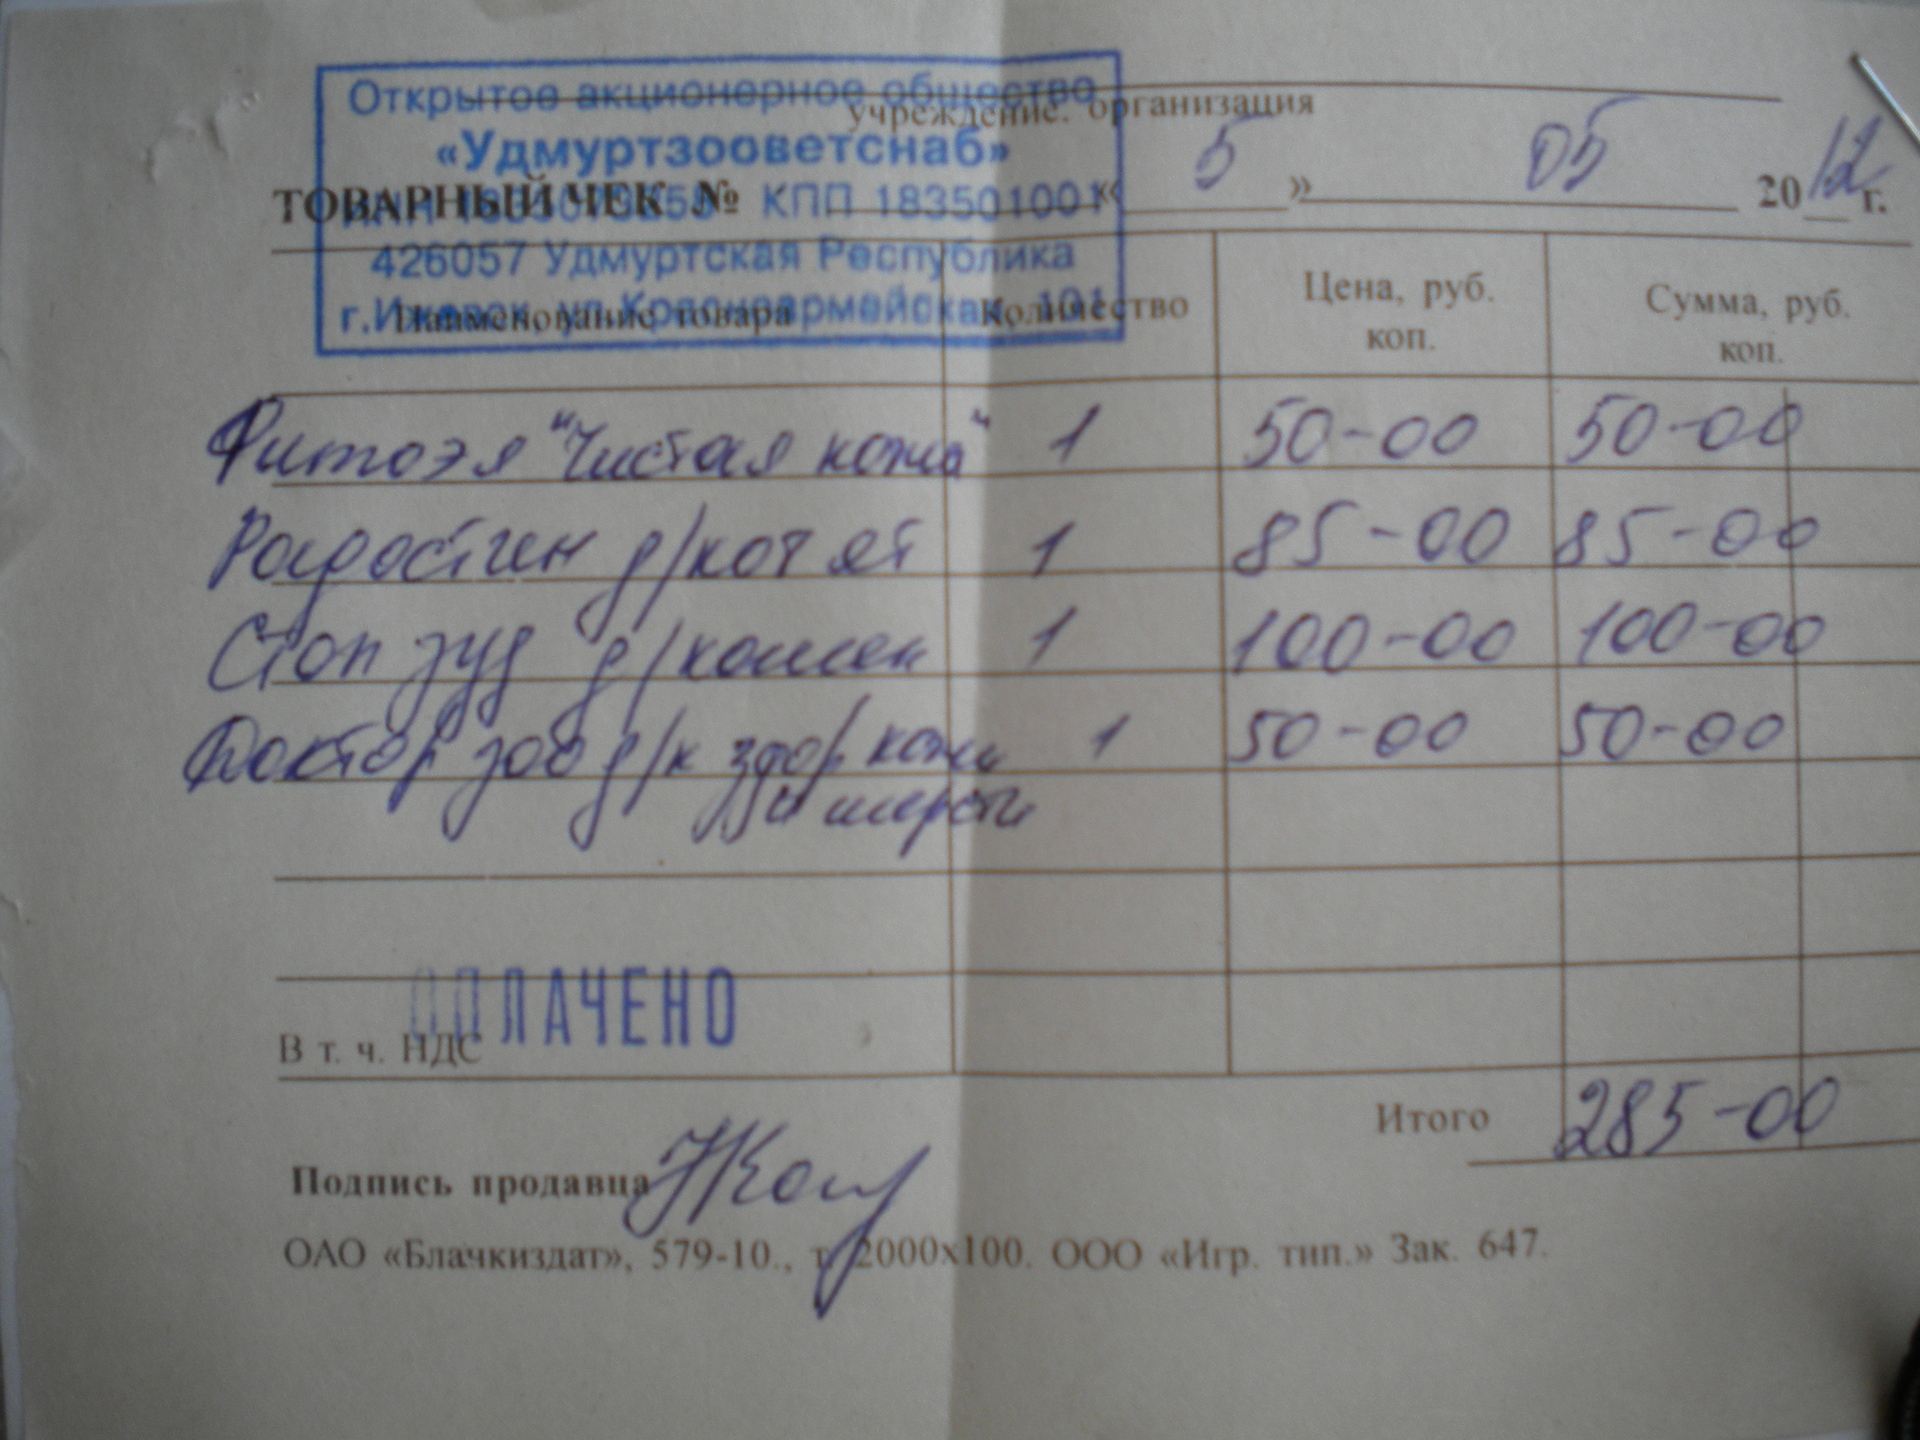 Открытое акционерное общество
учреждение. организация
«Удмуртзооветснаб»
ТОВАРНЫЙ ЧЕК № « 5 » 05 2012 г.
КПП 183501001
426057 Удмуртская Республика
г.Ижевск ул.Красноармейская, 101
Наименование товара Количество Цена, руб. коп. Сумма, руб. коп.
Фитоэл "Чистая кожа" 1 50-00 50-00
Радостин д/котят 1 85-00 85-00
Стоп зуд д/кошек 1 100-00 100-00
Доктор зоо д/к здор кожи 1 50-00 50-00
и шерсти
ОПЛАЧЕНО
В т. ч. НДС
Итого 285-00
Подпись продавца
ОАО «Блачкиздат», 579-10., т. 2000х100. ООО «Игр. тип.» Зак. 647.